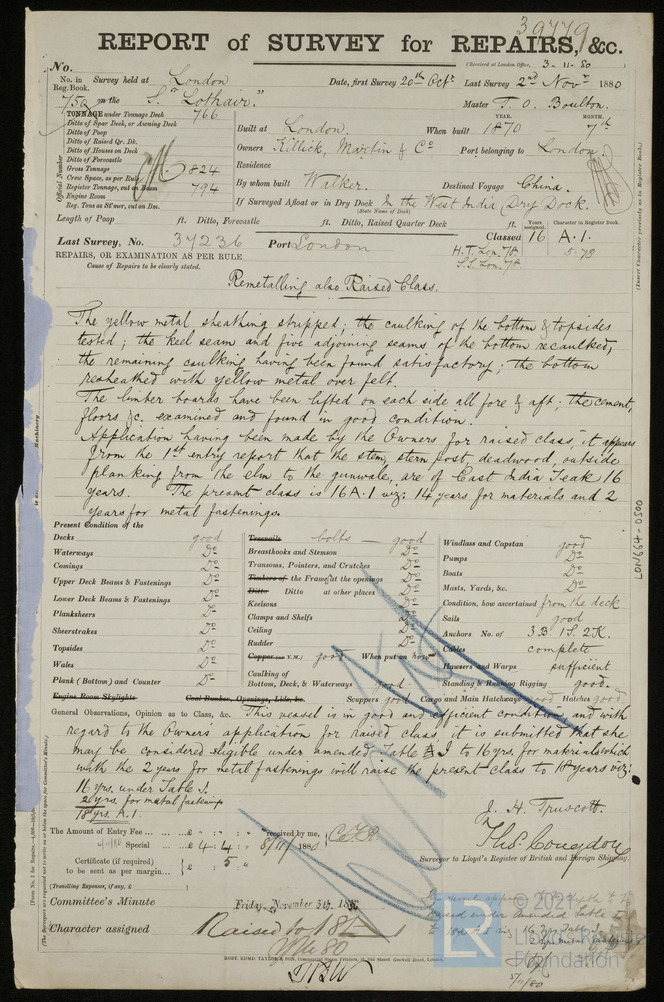 39779
REPORT of SURVEY for REPAIRS, &c.
(Received at London Office, 3-11-80
No.
No. in Reg. Book. Survey held at London Date, first Survey 20th Octr Last Survey 2nd Novr 1880
750 on the S. "Lothair." Master T. O. Boulton.
TONNAGE under Tonnage Deck 766
Ditto of Spar Deck, or Awning Deck
Ditto of Poop
Ditto of Raised Qr. Dk.
Ditto of Houses on Deck
Ditto of Forecastle
Gross Tonnage 824
Crew Space, as per Rule
Register Tonnage, cut on Beam 794
Engine Room
Reg. Tons as St'mer, cut on Bm.
Official Number
YEAR. MONTH.
Built at London. When built 1870 7th
Owners Killick, Martin & Co Port belonging to London.
Residence
By whom built Walker. Destined Voyage China.
If Surveyed Afloat or in Dry Dock In the West India Dry Dock.
(State Name of Dock)
Length of Poop ft. Ditto, Forecastle ft. Ditto, Raised Quarter Deck ft.
Years assigned. Character in Register Book.
Last Survey, No. 37236 Port London Classed 16 A.1.
5-79
H.T. Lon. 78
S.S. Lon. 78
REPAIRS, OR EXAMINATION AS PER RULE
Cause of Repairs to be clearly stated.
Remetalling also Raised Class.
The yellow metal sheathing stripped; the caulking of the bottom & topsides
tested; the keel seam and five adjoining seams of the bottom recaulked,
the remaining caulking having been found satisfactory; the bottom
resheathed with yellow metal over felt.
The limber boards have been lifted on each side all fore & aft; the cement,
floors &c. examined and found in good condition.
Application having been made by the Owners for raised class, it appears
from the 1st entry report that the stem, stern post, deadwood, outside
planking from the elm to the gunwale, are of East India Teak 16
years. The present class is 16 A.1 viz: 14 years for materials and 2
years for metal fastenings.
Present Condition of the
Decks good
Waterways Do
Comings Do
Upper Deck Beams & Fastenings Do
Lower Deck Beams & Fastenings Do
Planksheers Do
Sheerstrakes Do
Topsides Do
Wales Do
Plank (Bottom) and Counter Do
Engine Room Skylights Coal Bunker, Openings, Lids, &c.
Treenails bolts good
Breasthooks and Stemson Do
Transoms, Pointers, and Crutches Do
Timbers of the Frame at the openings Do
Ditto Ditto at other places Do
Keelsons Do
Clamps and Shelfs Do
Ceiling Do
Rudder Do
Copper (or Y.M.) good When put on now
Caulking of Bottom, Deck, & Waterways good
Scuppers good Cargo and Main Hatchways good Hatches good
Windlass and Capstan good
Pumps Do
Boats Do
Masts, Yards, &c. Do
Condition, how ascertained from the deck
Sails good
Anchors No. of 3 B. 1 S. 2 K.
Cables complete
Hawsers and Warps sufficient
Standing & Running Rigging good.
General Observations, Opinion as to Class, &c. This vessel is in good and efficient condition, and with
regard to the Owners' application for raised class, it is submitted that she
may be considered eligible under amended Table I to 16 yrs. for materials which
with the 2 years for metal fastenings will raise the present class to 18 years viz:
16 yrs. under Table I.
2 yrs. for metal fastenings
18 yrs. A.1.
J. H. Truscott.
Thos. Congdon
Surveyor to Lloyd's Register of British and Foreign Shipping.
The Amount of Entry Fee ... £ : : received by me,
Special ... £ 4 : 4 : 5/11/1880
Certificate (if required) to be sent as per margin... £ : 5 :
(Travelling Expenses, if any, £ )
Committee's Minute Friday, November 5th, 1880
Character assigned Raised to 18 A 1
YM 80
5/11/80
LON 664-0500
© 2021
LR
Lloyd's Register
Foundation